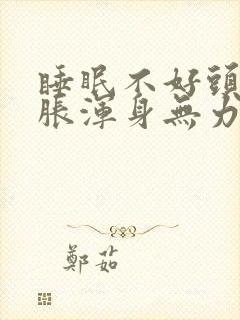 睡眠不好頭
脹渾身無力
鄭茹